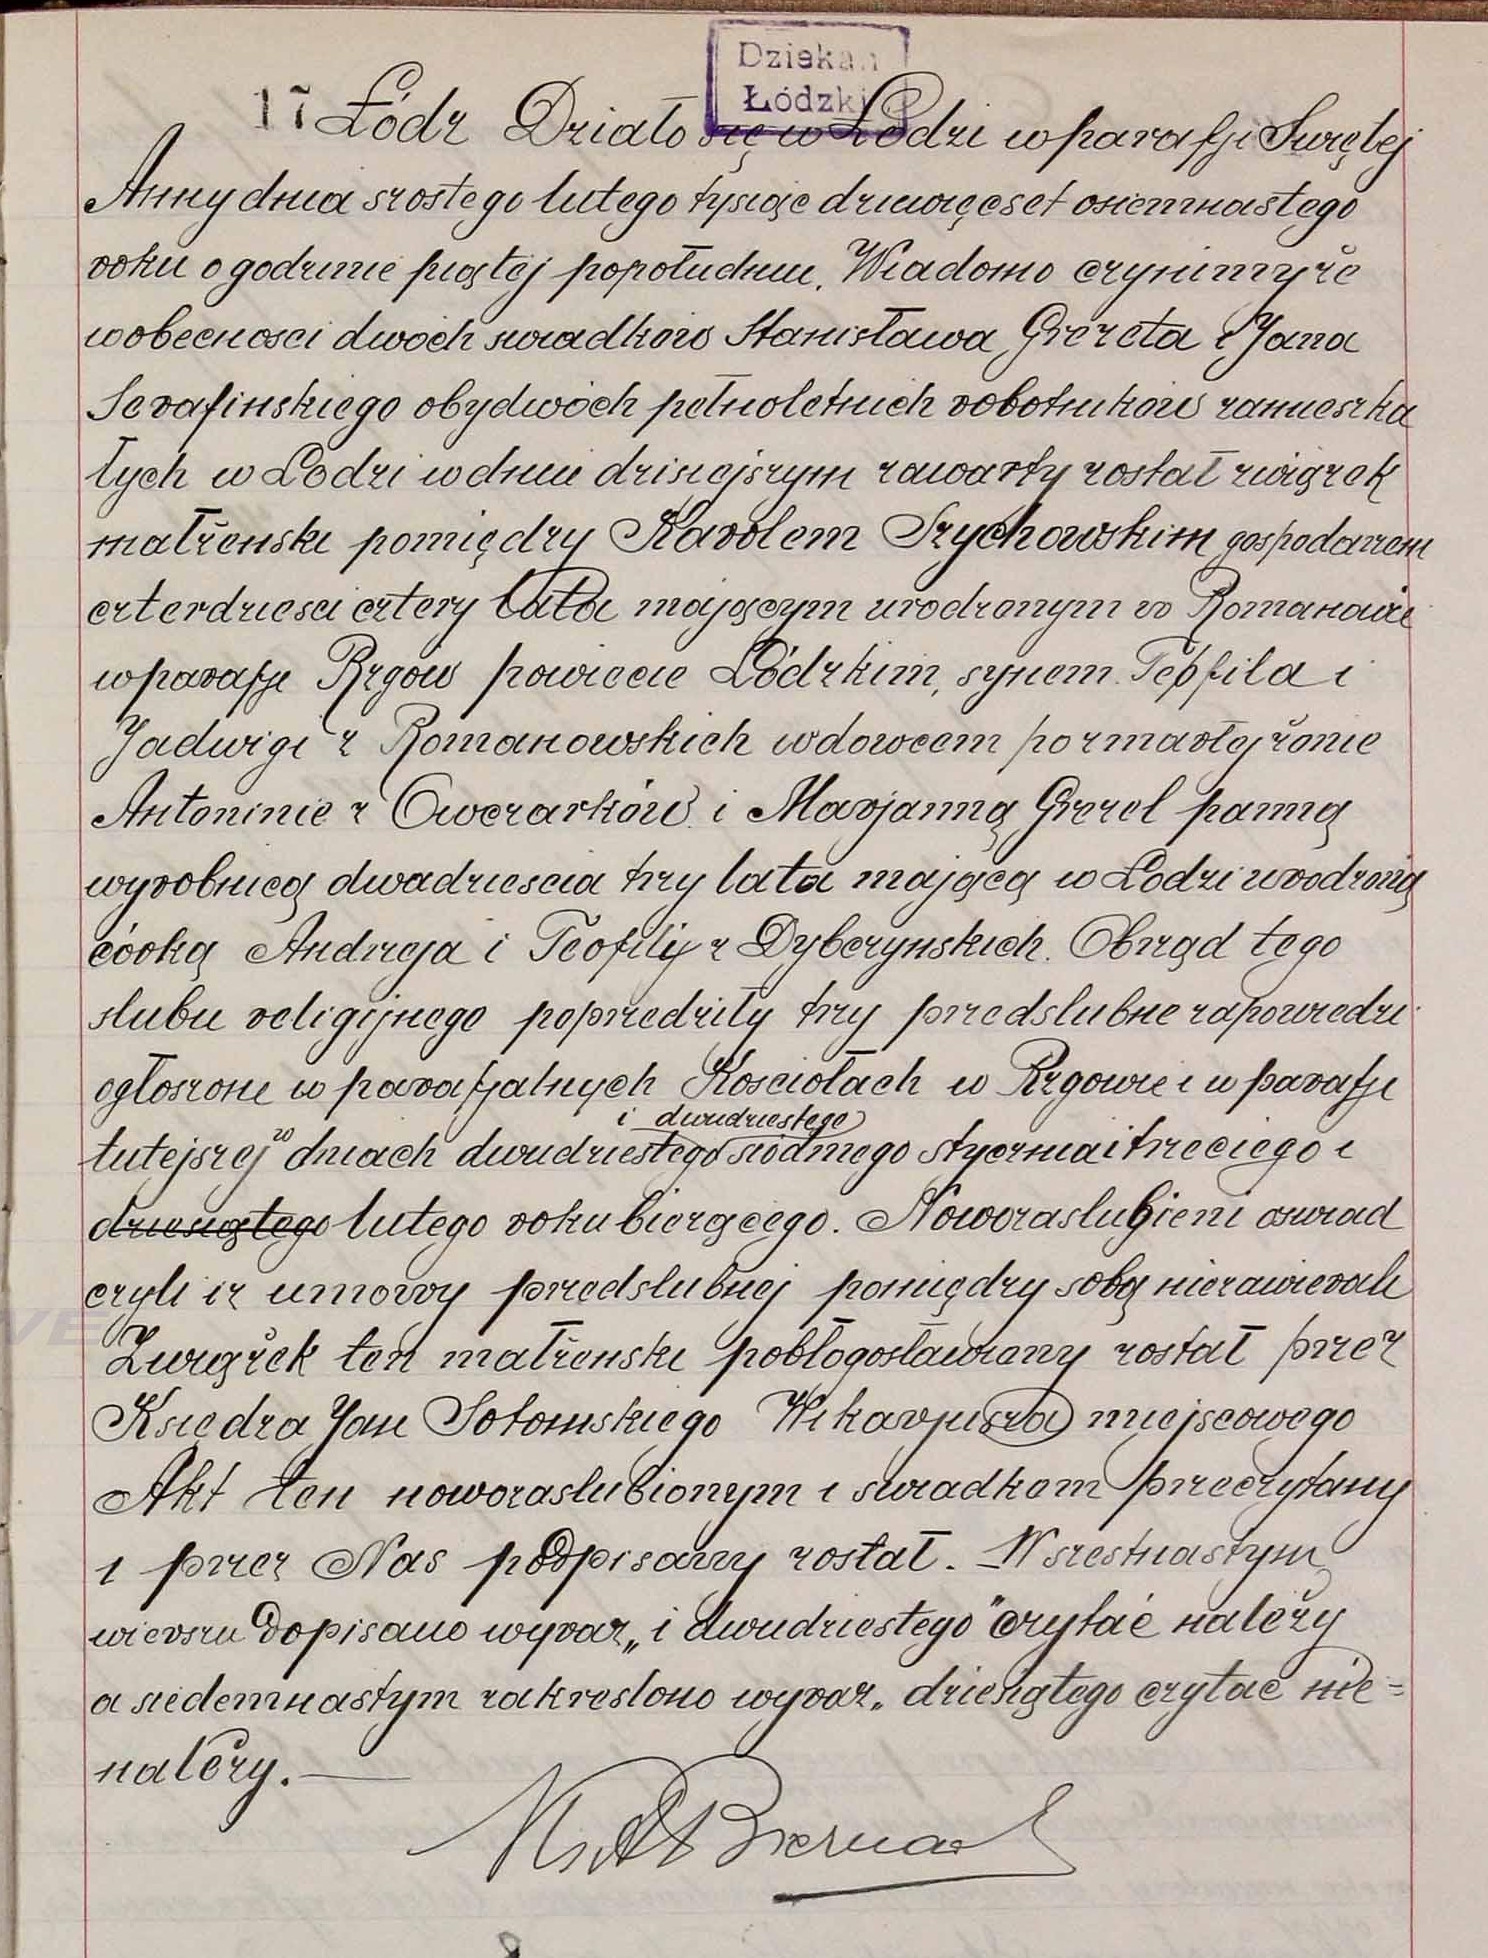 Dziekan
Łódzki
17 Łódz Działo się w Łodzi w parafji Swiętej
Anny dnia szostego lutego tysiąc dziewięcset osiemnastego
roku o godzinie piątej popołudniu. Wiadomo czynimy że
w obecnosci dwóch swiadków Stanisława Grzreta i Jana
Serafinskiego obydwóch pełnoletnich robotników zamieszka
łych w Łodzi w dniu dzisiejszym zawarty został związek
małżenski pomiędzy Karolem Szychowskim gospodarzem
czterdziesci cztery lata mającym urodzonym w Romanowie
w parafji Rzgów powiecie Łódzkim, synem Teofila i
Jadwigi z Romanowskich wdowcem po zmarłej żonie
Antoninie z Owczarków i Marjanną Grzrel panną
wyrobnicą dwadziescia trzy lata mającą w Łodzi urodzoną
córką Andrzeja i Teofily z Dybczynskich. Obrząd tego
slubu religijnego poprzedziły trzy przedslubne zapowiedzi
ogłoszone w parafjalnych Kosciołach w Rzgowie i w parafji
i dwudziestego
tutejszej w dniach dwudziestego siódmego stycznia i trzeciego i
dziesiątego lutego roku bierzącego. Nowozaslubieni oswiad
czyli iz umowy przedslubnej pomiędzy sobą niezawierali
Związek ten małżenski pobłogosławiony został przez
Księdza Jan Sotomskiego Wikarjusza miejscowego
Akt ten nowozaslubionym i swiadkom przeczytany
i przez Nas podpisany został. W szesnastym
wierszu dopisano wyraz „i dwudziestego" czytać należy
a siedemnastym zakreslono wyraz „ dziesiątego czytac nie=
należy. —